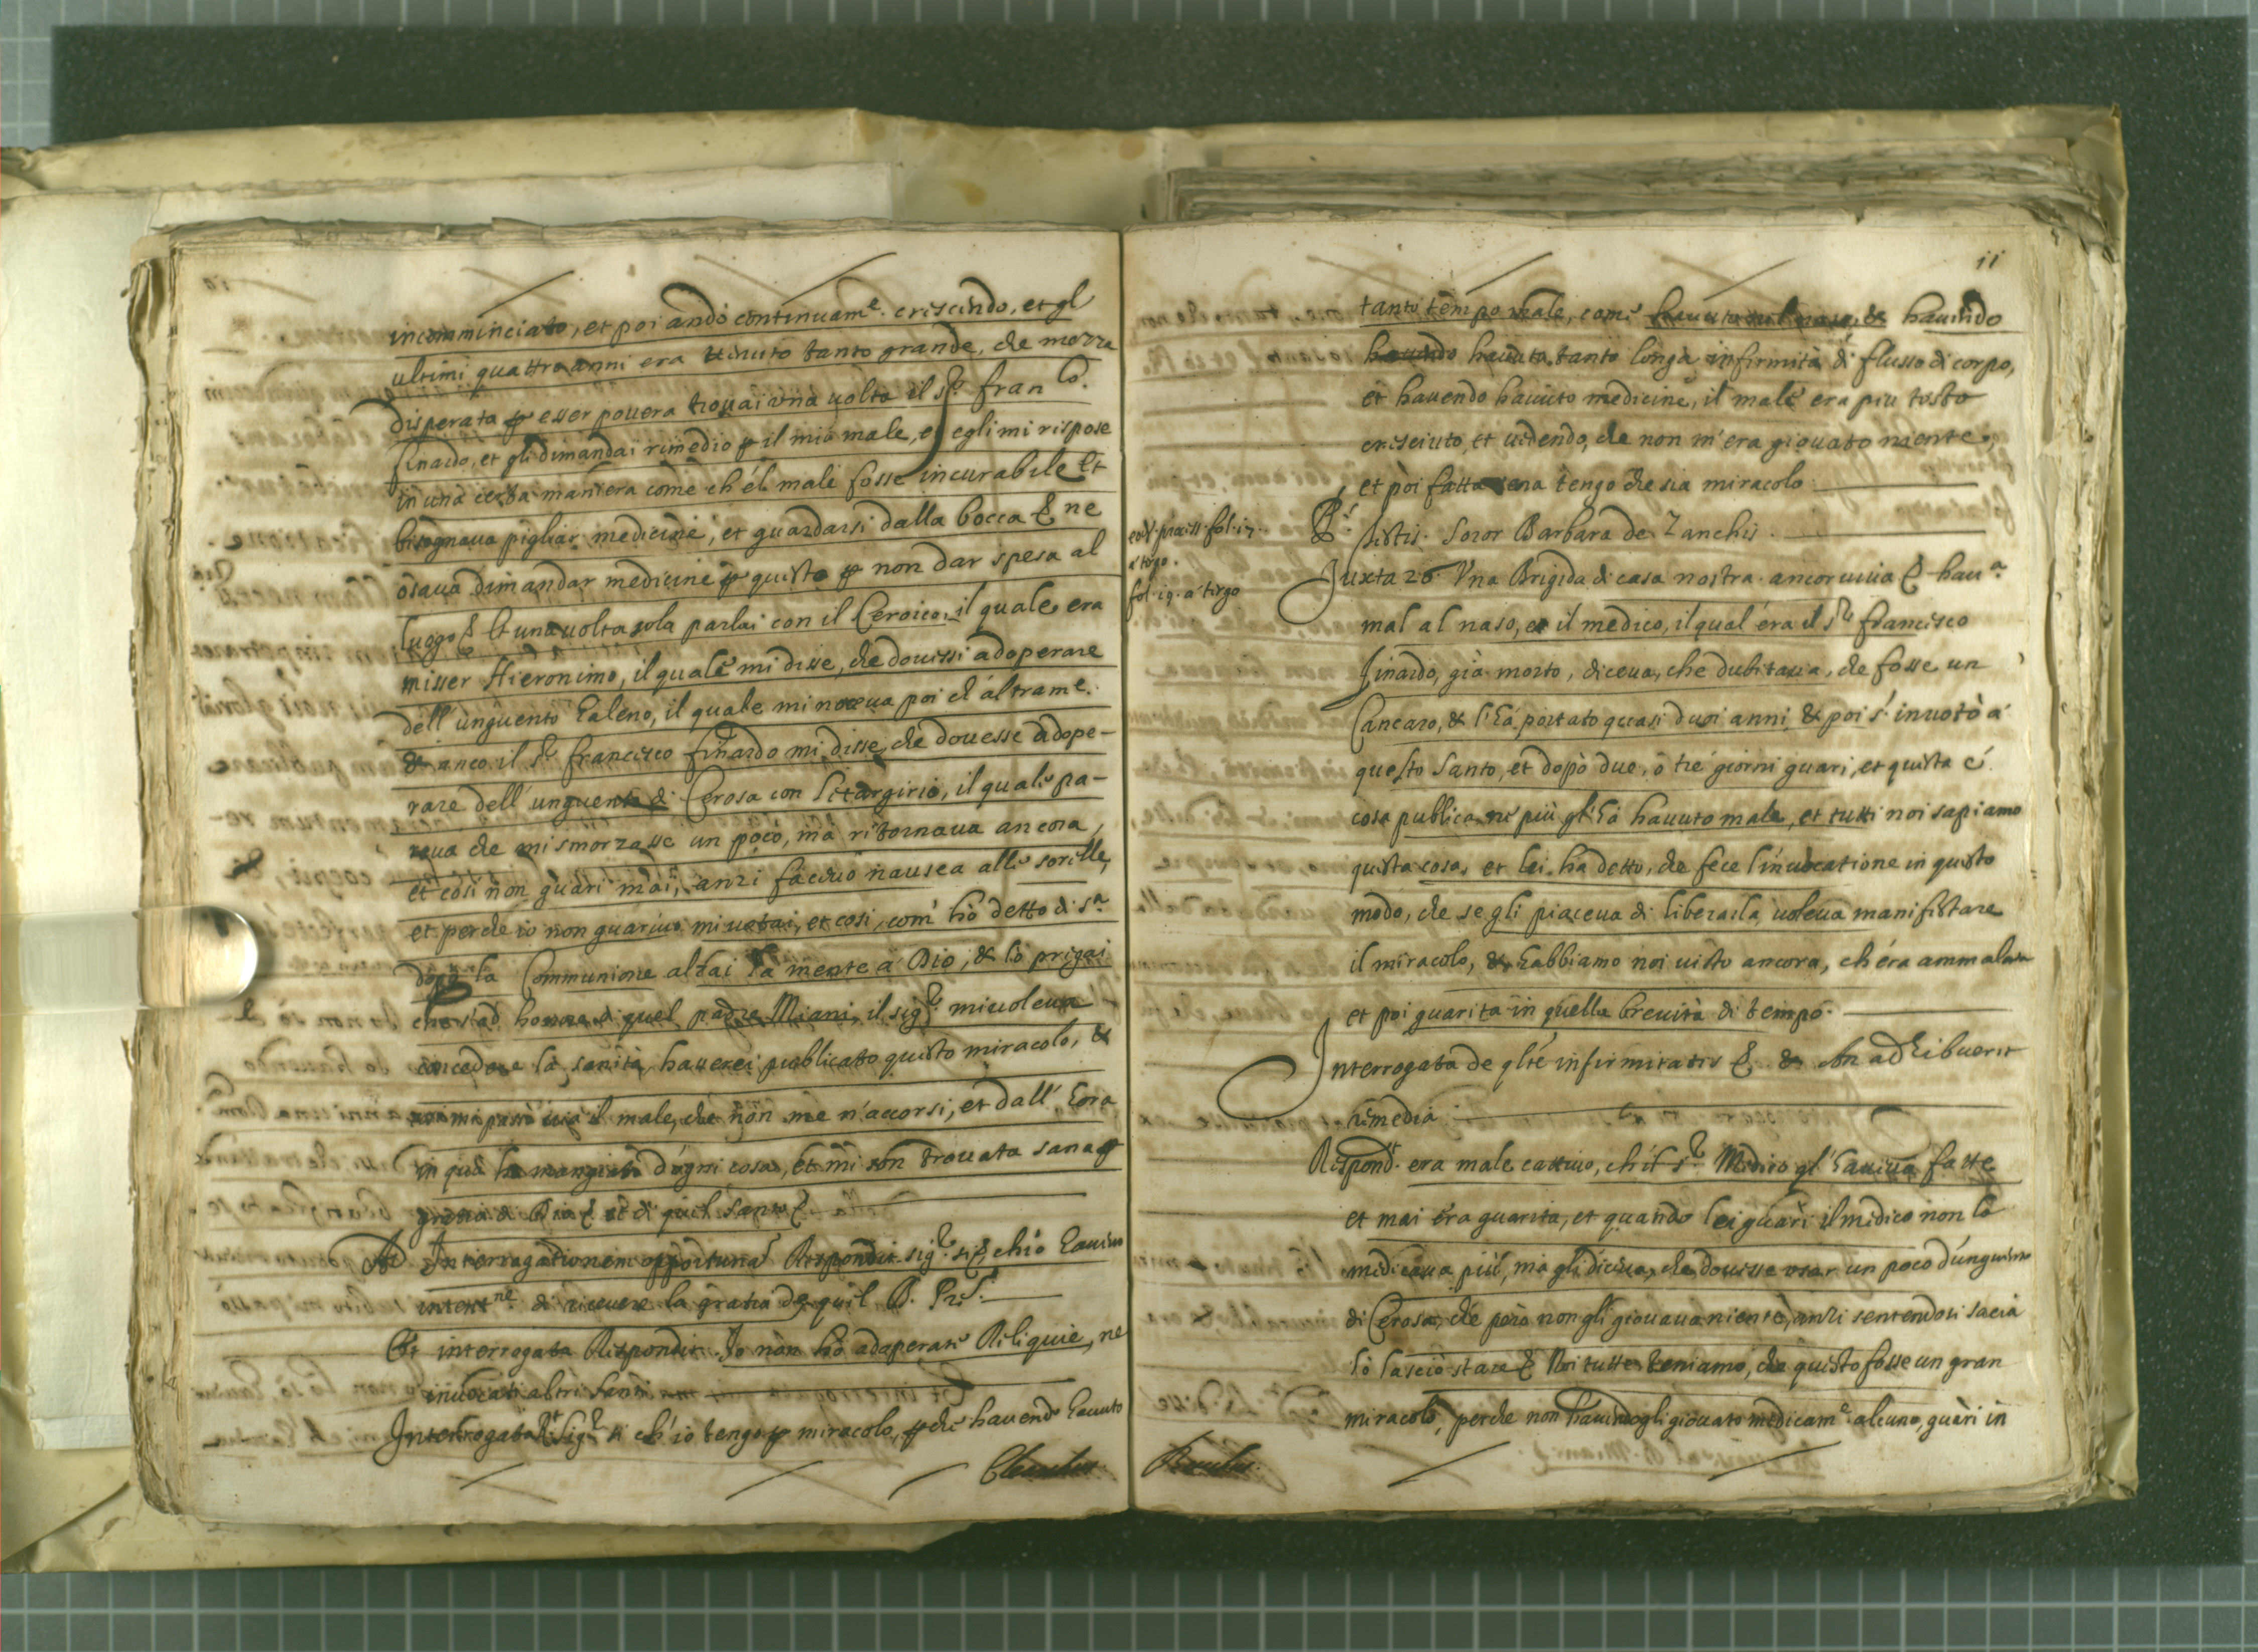 incomminciato, et poi andò continuam.e crescendo, et gl
ultimi quattro anni era tenuto tanto grande, che mezza
disperata ꝑ esser pouera trouai una uolta il s.r Fran.co
Finardo, et gli dimandai rimedio ꝑ il mio male, et egli mi rispose
in una certa maniera come ch'él male fosse incurabile et
bisognaua pigliar medicine, et guardarsi dalla bocca & ne
osaua dimandar medicine ꝑ questo ꝑ non dar spesa al
luogo & et una uolta sola parlai con il Ceroico, il quale era
misser Hieronimo, il quale mi disse, che douessi adoperare
dell'unguento Galeno, il quale mi noceua poi ch'altram.e
& anco il s.r Francesco Finardo mi disse, che douesse adope-
rare dell'unguento di Cerosa con Litargirio, il quale pa-
reua che mi smorzasse un poco, ma ritornaua ancora,
et cosi non guari mai, anzi faceuo nausea alle sorelle,
et perche io non guariuo mi uotai, et cosi, com' hò detto di s.a
dopo la Communione alzai la mente a Dio, & lo pregai
che s'ad honore di quel padre Miani, il sig.r mi uoleua
concedere la sanità, hauerei publicato questo miracolo, &
mi passò uia il male, che non me n'accorsi, et dall' hora
in quà ho mangiato d'ogni cosa, et mi son trouata sana ꝑ
gratia di Dio & et di quel santo &
Ad Interrogationem opportunam Respondit sig.r si & ch'io haueuo
intent.ne di riceuere la gratia da quel B. Pre.
Et interrogata Respondit. Io non hò adoperate Reliquie, ne
inuocati altri santi
Interrogata R.t sig.r si ch'io tengo ꝑ miracolo, ꝑche hauend' hauuto
11
tanto tempo male, come hauendo
hauendo hauuta tanto longa infirmità di flusso di corpo,
et hauendo hauuto medicine, il male era piu tosto
cresciuto, et uedendo, che non m'era giouato niente,
et pòi fatta sana tengo che sia miracolo
eod. process. fol. 17.
a tergo.
fol. 19. a tergo
testis. Soror Barbara de Zanchis.
Juxta 26. Vna Brigida di casa nostra ancor uiua & hau.a
mal al naso, et il medico, il qual' éra il s.r Francesco
Finardo, già morto, diceua, che dubitaua, che fosse un
Cancaro, & l'hà portato quasi duoi anni & poi s'inuotò a
questo Santo, et dopò due, ò tre giorni guari, et questa é
cosa publica, ne più gl'hà hauuto male, et tutti noi sapiamo
questa cosa, et lei ha detto, che fece l'inuocatione in questo
modo, che se gli piaceua di liberarla, uoleua manifestare
il miracolo, & habbiamo noi uisto ancora, ch'éra ammalata
et poi guarita in quella breuità di tempo.
Interrogata de q̃lte infirmitatis & & An adhibuerit
remedia
Respond.t era male cattiuo, ch'il s.r Medico gl'haueua fatte
et mai éra guarita, et quando lei guarì il medico non la
medicaua più, ma gli diceua, che douesse usar un poco d'unguento
di Cerosa, che però non gli giouaua niente, anzi sentendosi sacia
lo lasciò stare & Noi tutte teniamo, che questo fosse un gran
miracolo, perche non hauendogli giouato medicam.e alcuno, guari in